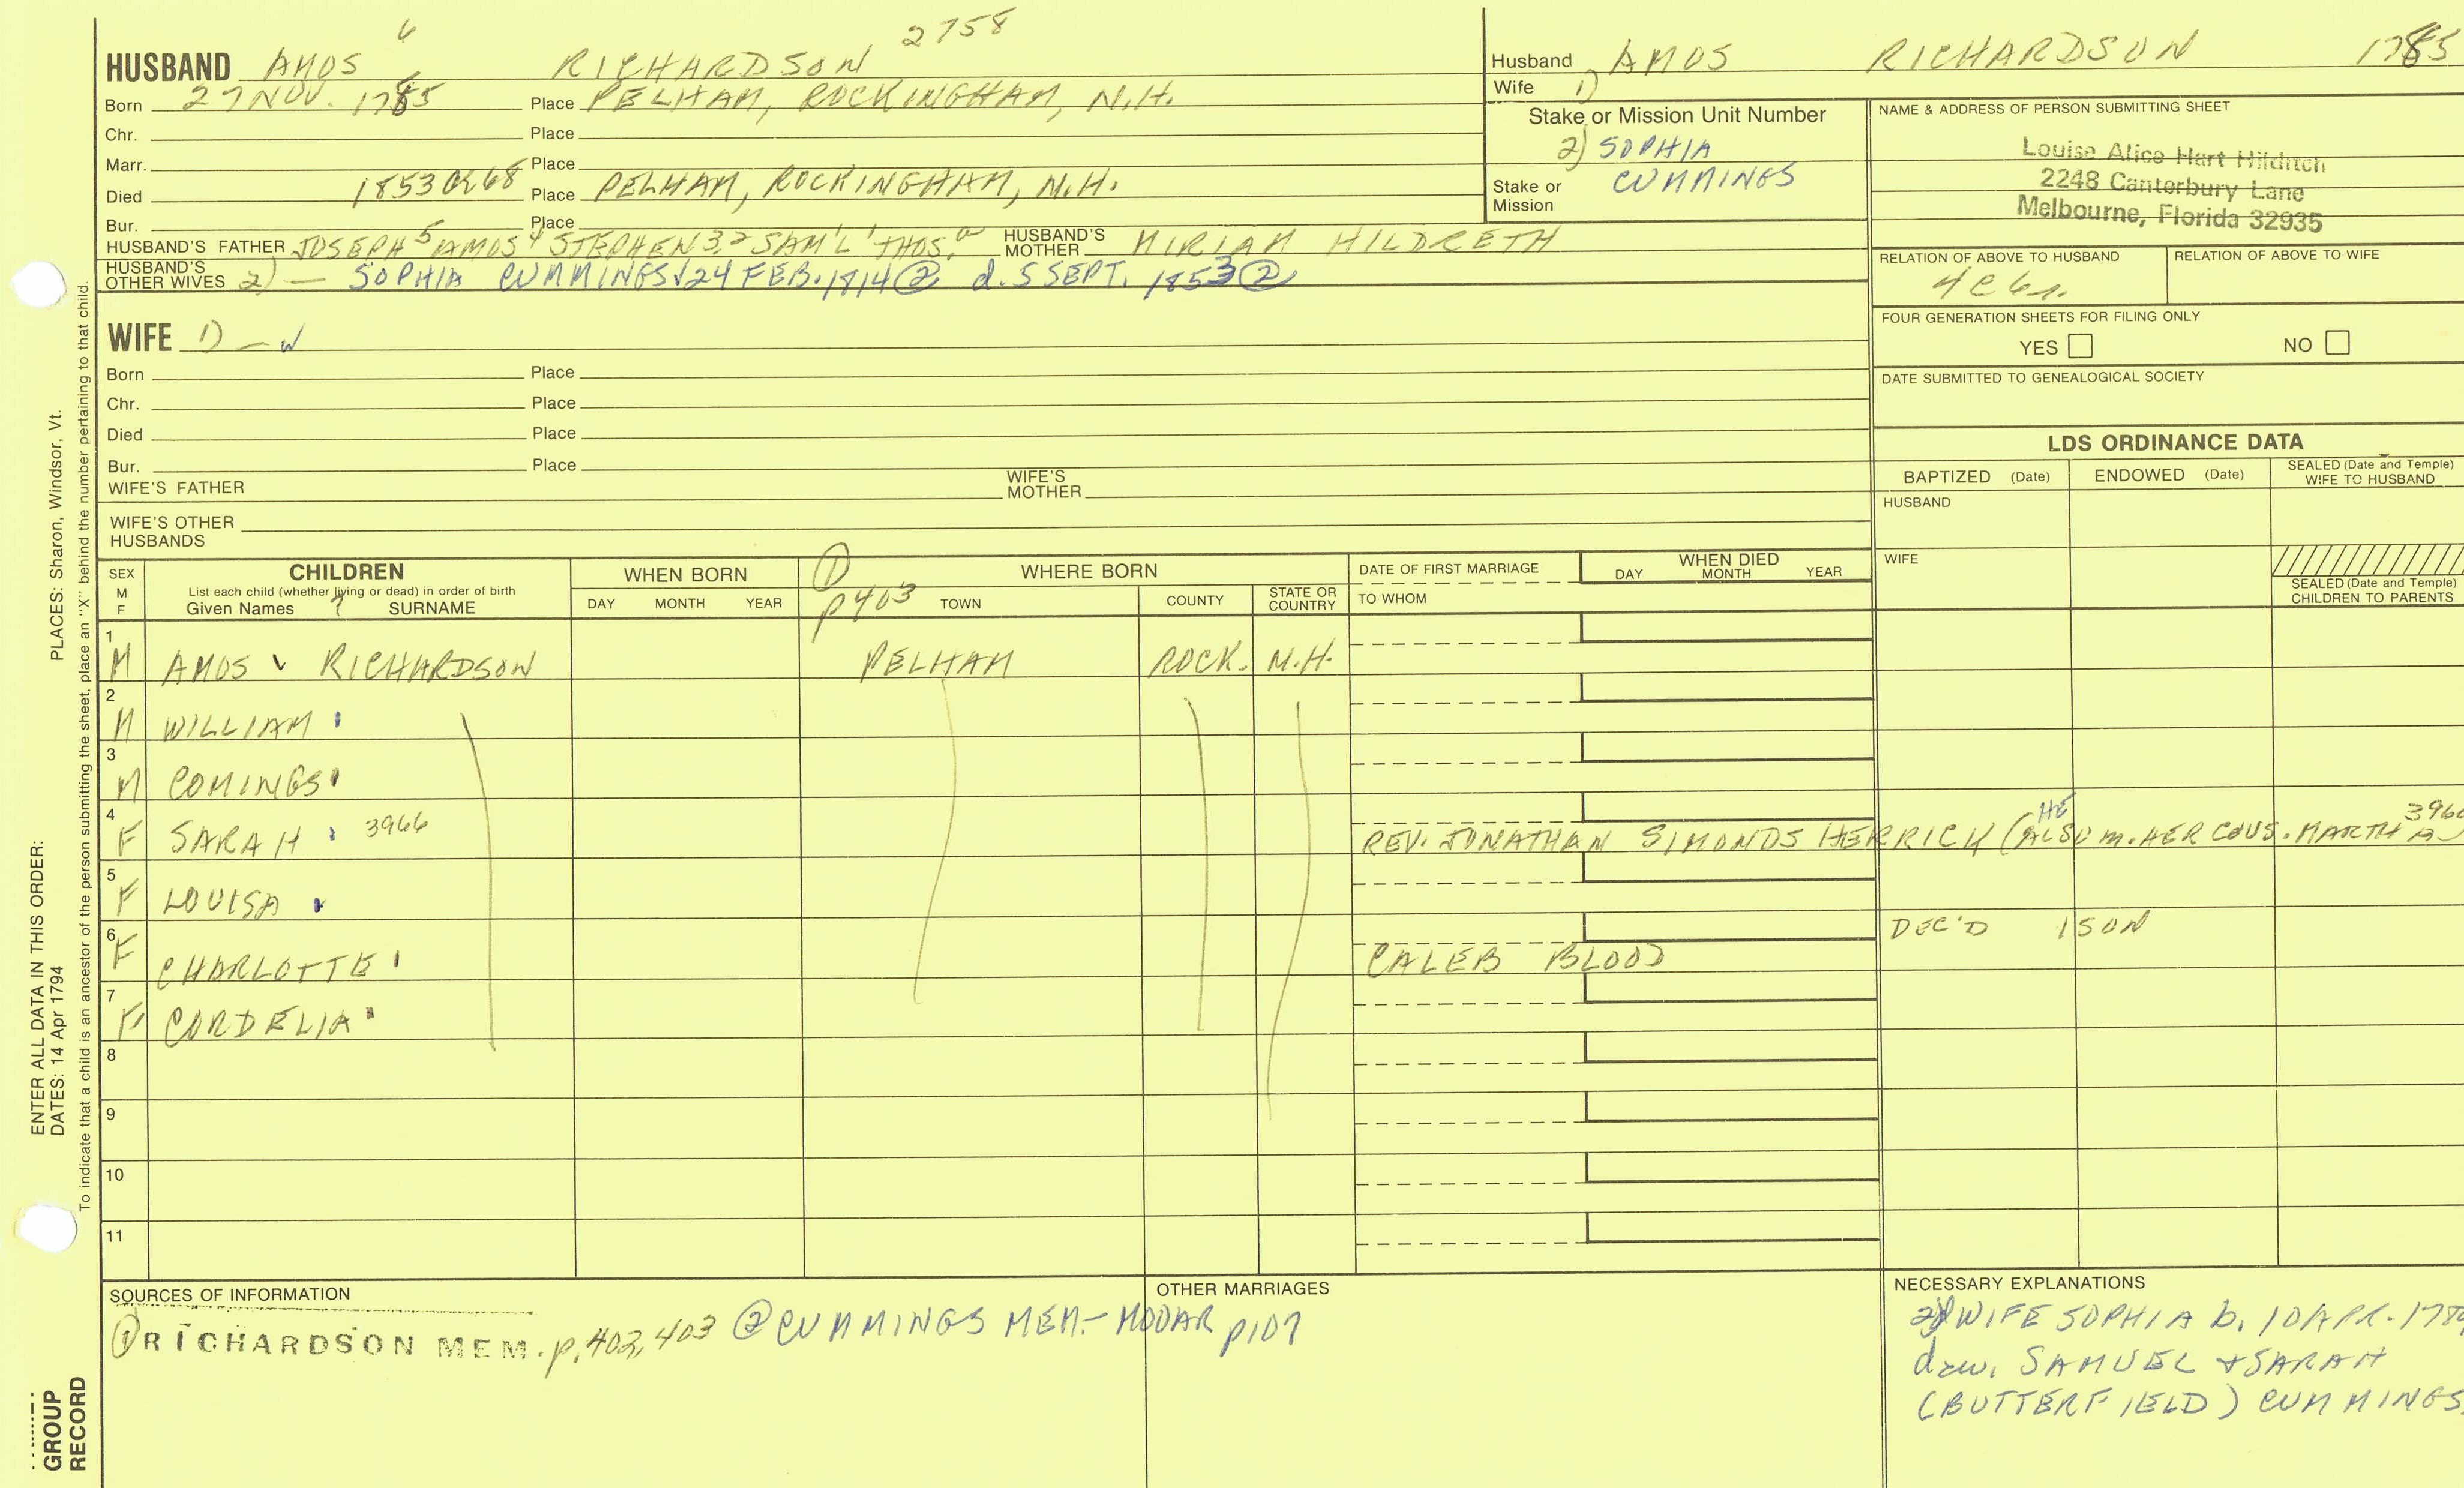 6 2758
HUSBAND AMOS RICHARDSON
Born 27 NOV. 1785 Place PELHAM, ROCKINGHAM, N.H.
Chr. Place
Marr. Place
Died 1853 OR 68 Place PELHAM, ROCKINGHAM, N.H.
Bur. Place
HUSBAND'S FATHER JOSEPH 5 AMOS 4 STEPHEN 3,2 SAM'L 1 THOS. a HUSBAND'S MOTHER MIRIAM HILDRETH
HUSBAND'S OTHER WIVES 2) — SOPHIA CUMMINGS 24 FEB. 1814 ② d. 5 SEPT. 1853 ②
WIFE 1) —
Born Place
Chr. Place
Died Place
Bur. Place
WIFE'S FATHER WIFE'S MOTHER
WIFE'S OTHER HUSBANDS
Husband AMOS RICHARDSON 1785
Wife 1)
Stake or Mission Unit Number
2) SOPHIA
CUMMINGS
Stake or Mission
NAME & ADDRESS OF PERSON SUBMITTING SHEET
Louise Alice Hart Hilditch
2248 Canterbury Lane
Melbourne, Florida 32935
RELATION OF ABOVE TO HUSBAND RELATION OF ABOVE TO WIFE
4C6r.
FOUR GENERATION SHEETS FOR FILING ONLY
YES NO
DATE SUBMITTED TO GENEALOGICAL SOCIETY
LDS ORDINANCE DATA
BAPTIZED (Date) ENDOWED (Date) SEALED (Date and Temple) WIFE TO HUSBAND
HUSBAND
WIFE
SEALED (Date and Temple) CHILDREN TO PARENTS
SEX M F
CHILDREN
List each child (whether living or dead) in order of birth
Given Names ? SURNAME
WHEN BORN
DAY MONTH YEAR
① p403
WHERE BORN
TOWN COUNTY STATE OR COUNTRY
DATE OF FIRST MARRIAGE
TO WHOM
WHEN DIED
DAY MONTH YEAR
1 M AMOS RICHARDSON PELHAM ROCK. N.H.
2 M WILLIAM
3 M COMINGS
4 F SARAH 3966 REV. JONATHAN SIMONDS HERRICK (HE ALSO M. HER COUS. MARTHA
5 F LOUISA
6 F CHARLOTTE CALEB BLOOD DEC'D 1 SON
7 F CORDELIA
8
9
10
11
SOURCES OF INFORMATION
① RICHARDSON MEM. p. 402, 403 ② CUMMINGS MEM.- MOOAR p107
OTHER MARRIAGES
NECESSARY EXPLANATIONS
2) WIFE SOPHIA b. 10 APR. 1789
dau. SAMUEL & SARAH
(BUTTERFIELD) CUMMINGS
PLACES: Sharon, Windsor, Vt.
ENTER ALL DATA IN THIS ORDER:
DATES: 14 Apr 1794
To indicate that a child is an ancestor of the person submitting the sheet, place an "X" behind the number pertaining to that child.
GROUP
RECORD